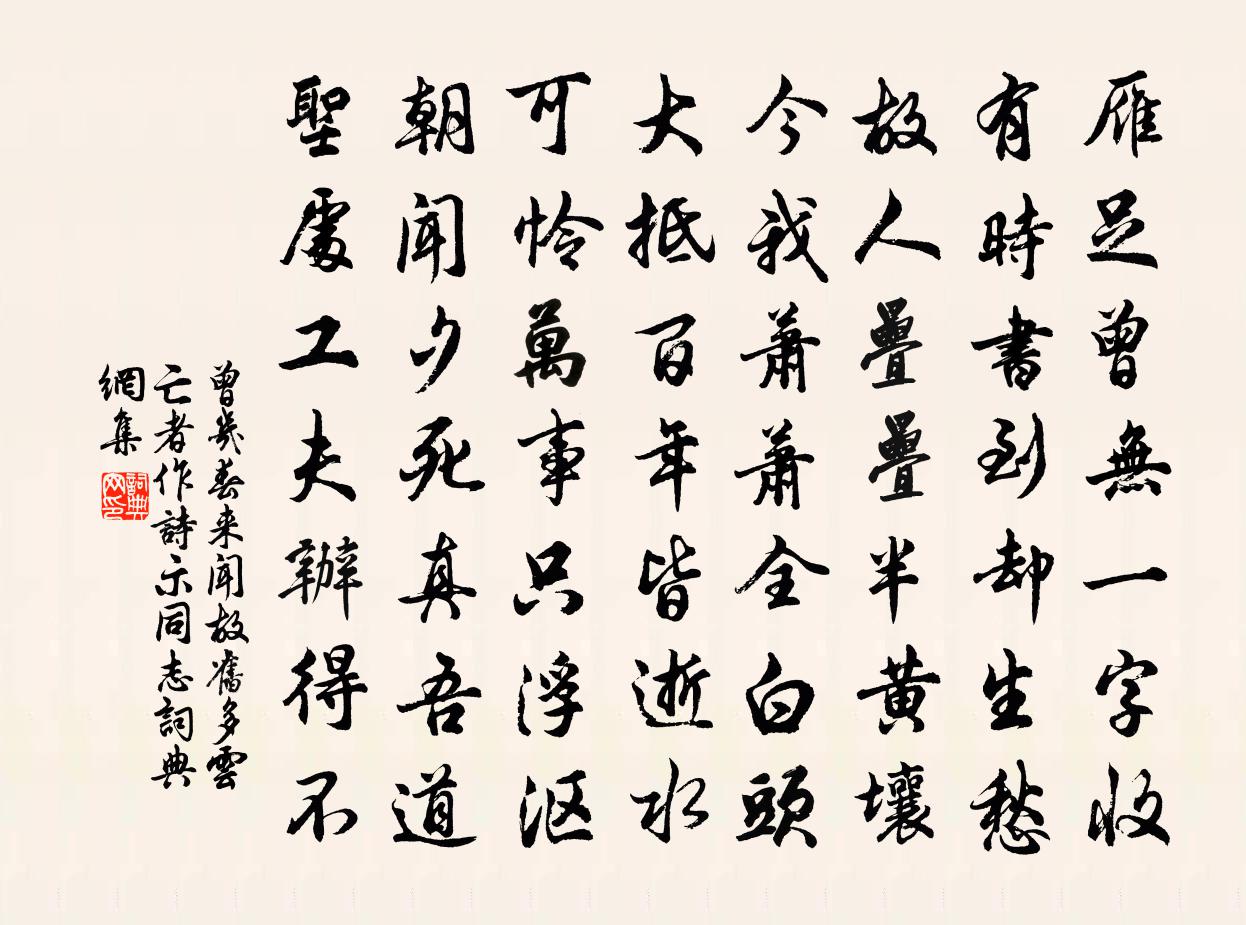 雁足曾無一字收
有時書到却生愁
故人疊疊半黃壤
今我蕭蕭全白頭
大抵百年皆逝水
可怜萬事只浮沤
朝闻夕死真吾道
聖處工夫辦得不
曾幾春来闻故舊多雲
亡者作詩示同志詞典
網集
詞典网印